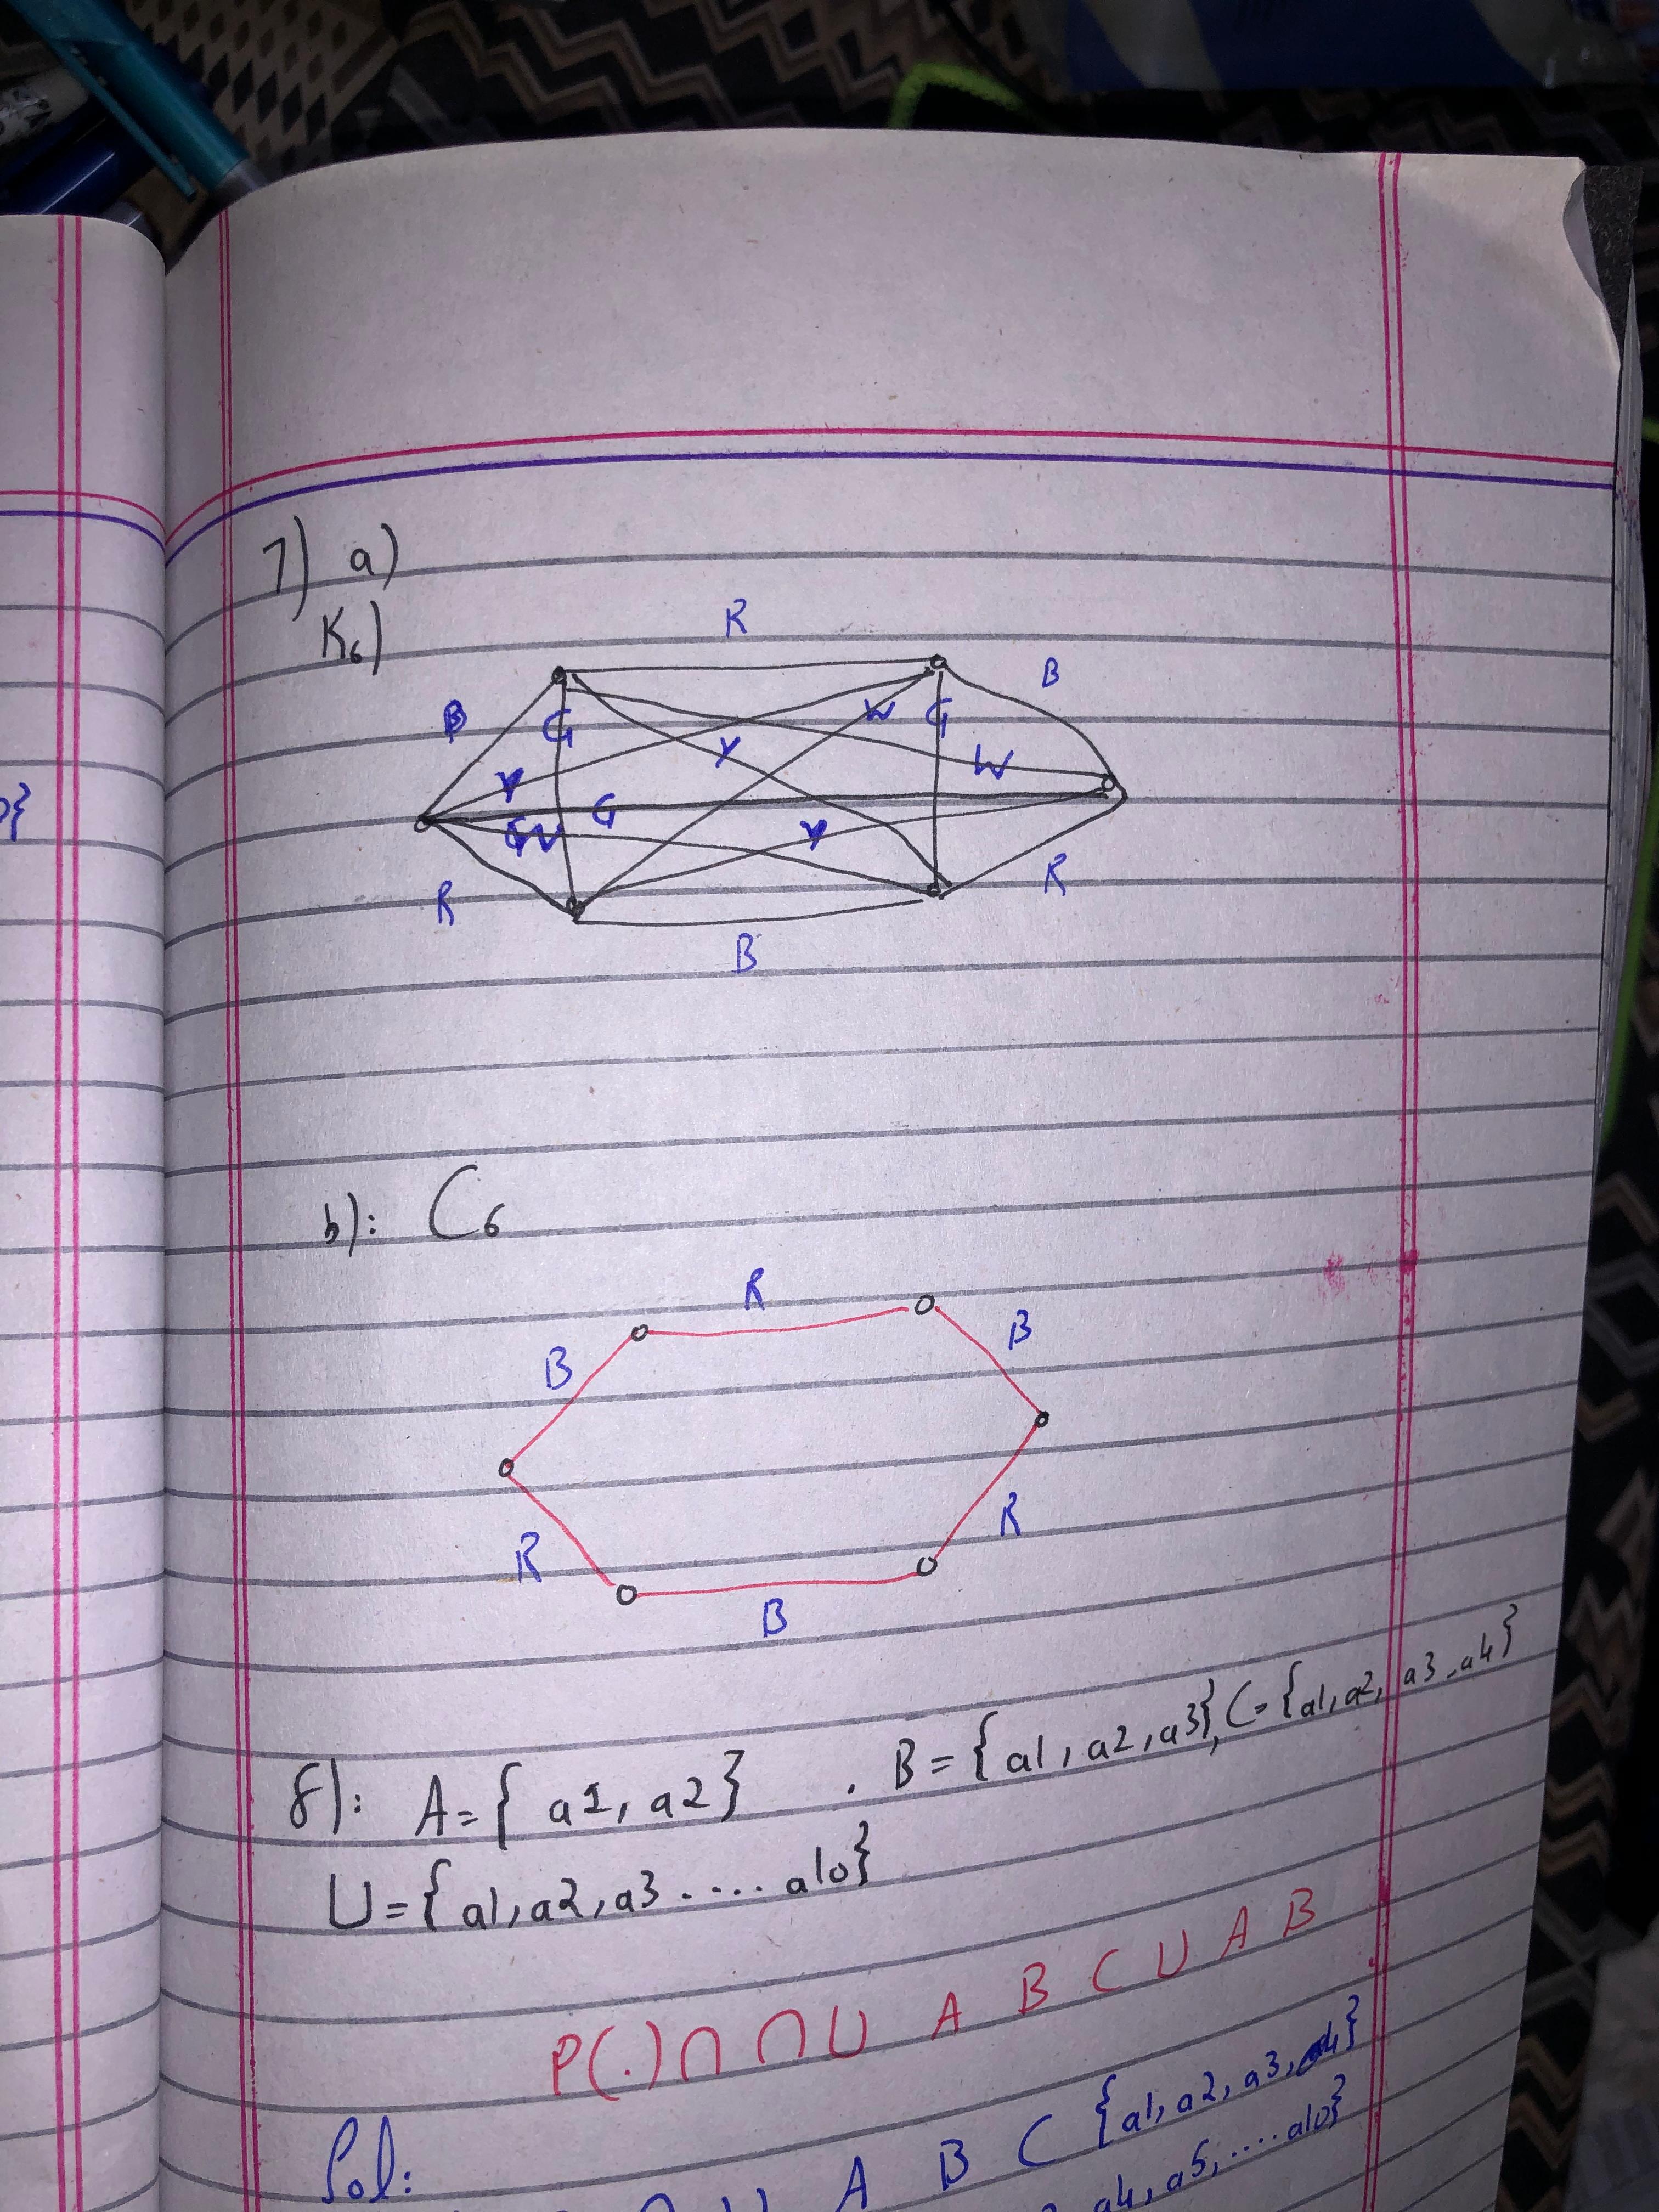 7) a)
K6)
R
B
B
G
W
G
Y
W
Y
G
Y
R
R
B
b): C6
R
B
B
R
R
B
8): A = { a1, a2 } . B = { a1, a2, a3}, C = {a1, a2, a3 - a4}
U = { a1, a2, a3 .... a10}
P(.) ∩ ∩ U A B C U A B
Sol: A B C {a1, a2, a3, a4}
a4, a5, .... a10}